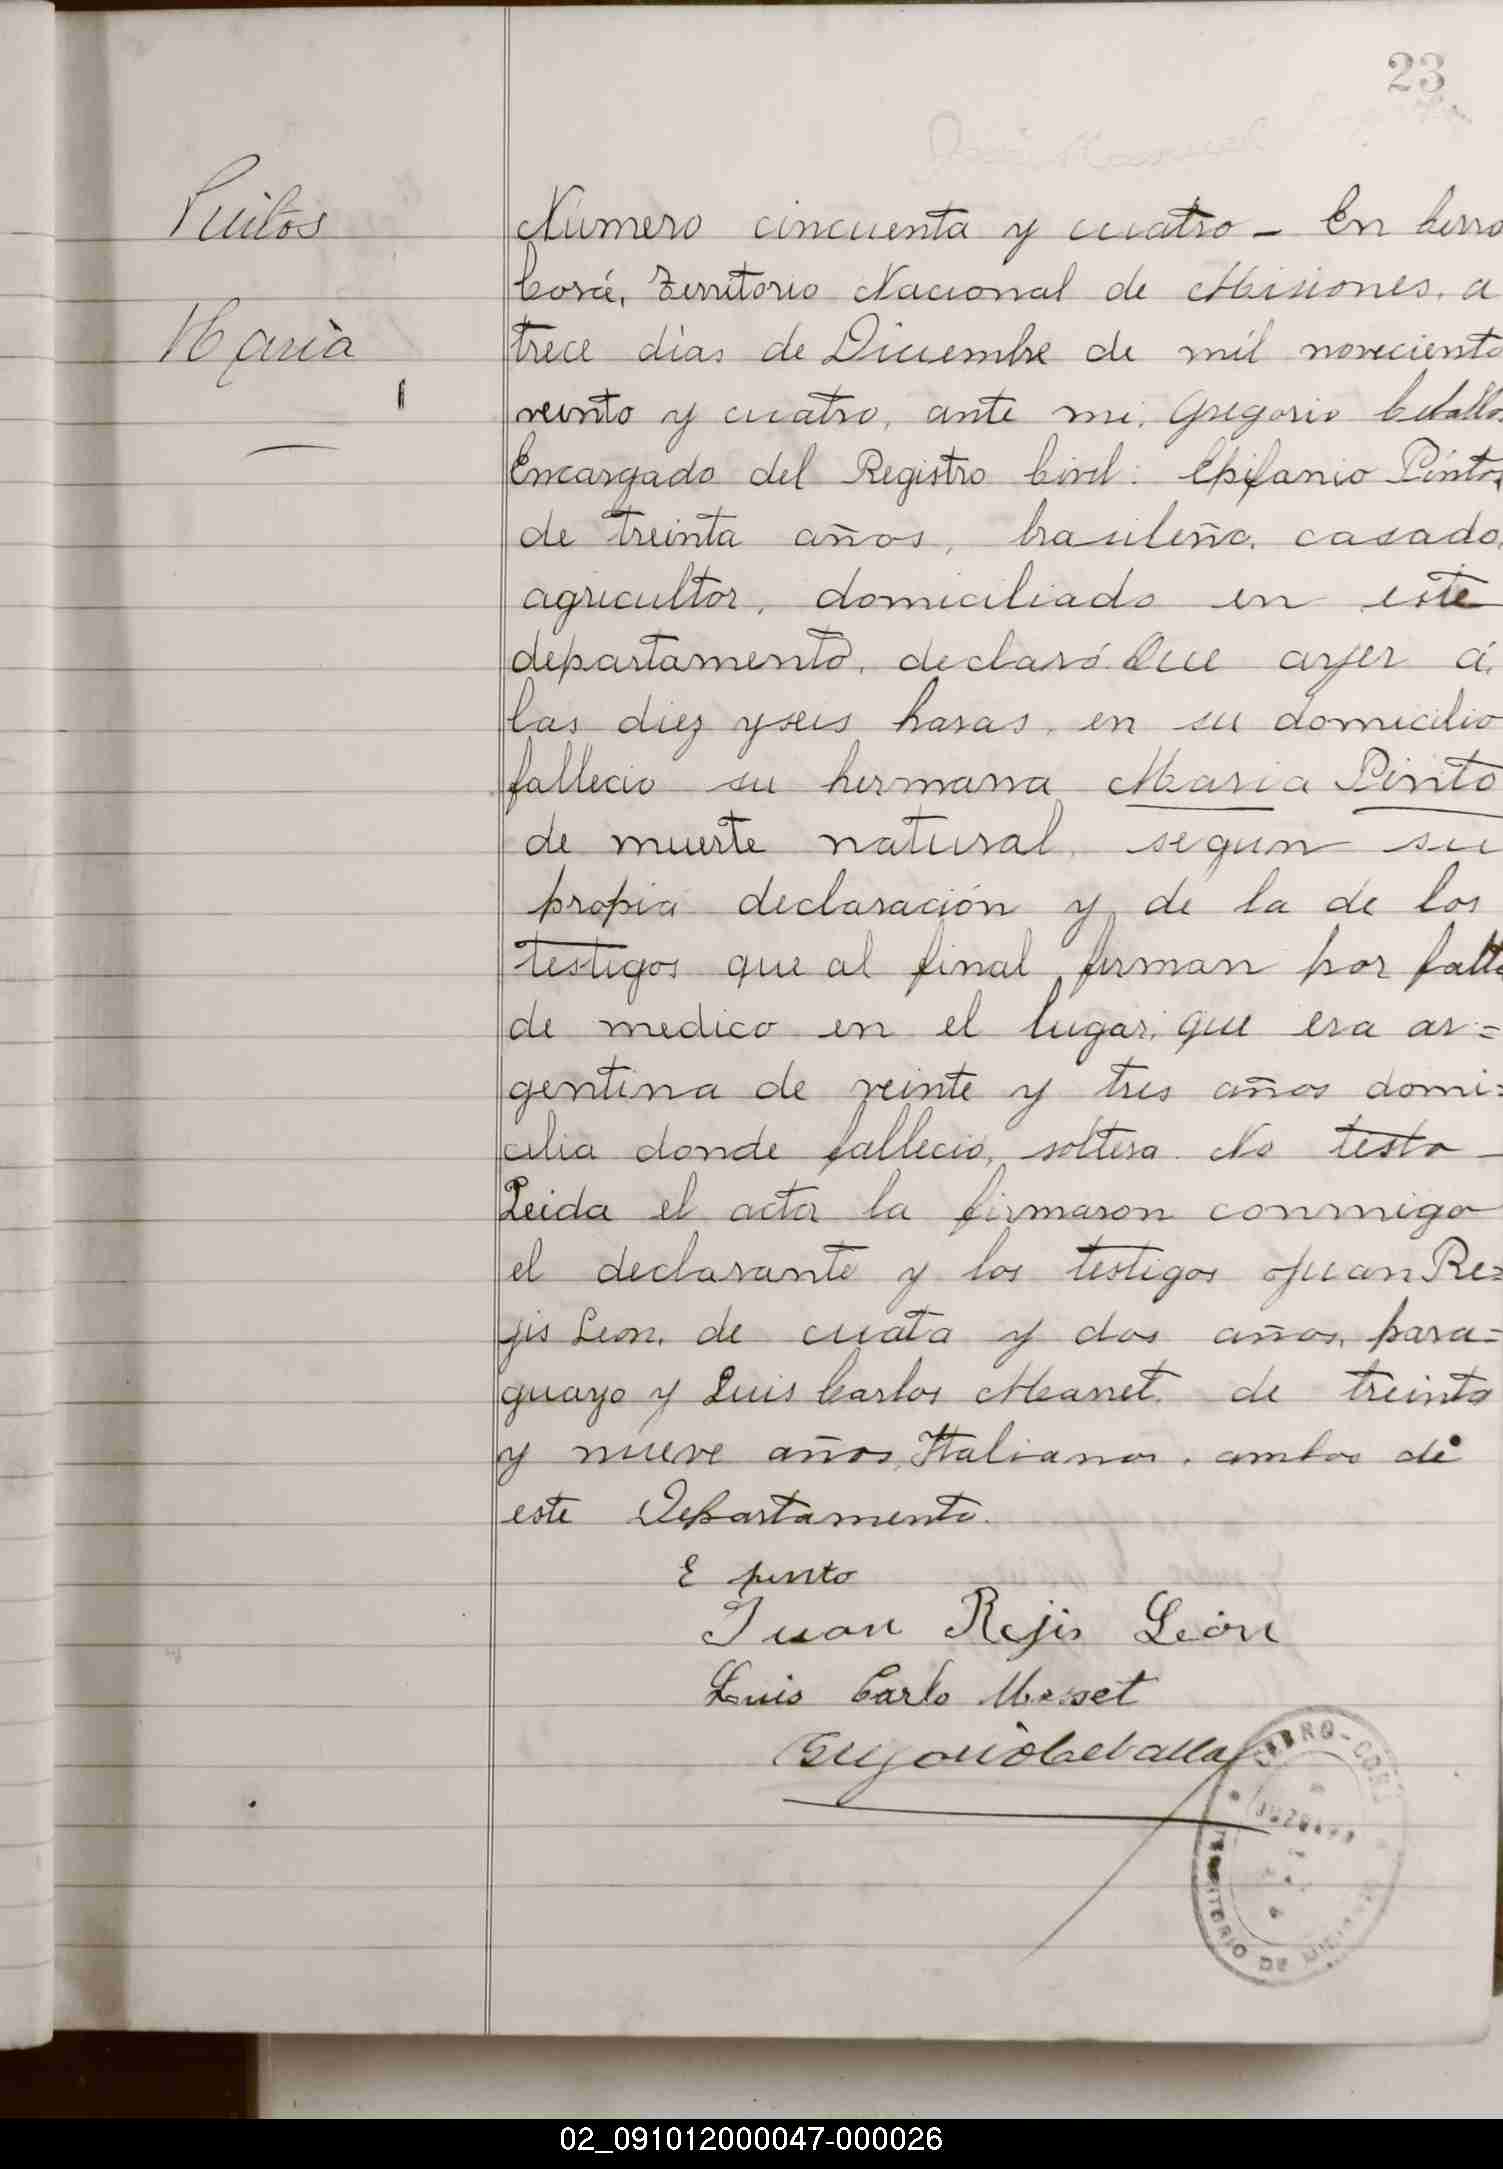 23
Pintos
María
Número cincuenta y cuatro - En Cerro
Corá, Territorio Nacional de Misiones, a
trece días de Diciembre de mil noveciento
veinto y cuatro, ante mi, Gregorio Ceballos
Encargado del Registro Civil: Epifanio Pinto,
de treinta años, brasileño, casado,
agricultor, domiciliado en este
departamento, declaró Que ayer á
las diez y seis horas, en su domicilio
fallecio su hermana Maria Pinto
de muerte natural, segun su
propia declaración y de la de los
testigos que al final firman por falta
de medico en el lugar; que era ar=
gentina de veinte y tres años domi=
cilia donde fallecio, soltera. No testo -
Leida el acta la firmaron conmigo
el declarante y los testigos Juan Re=
jis Leon, de cuata y dos años, para=
guayo y Luis Carlos Meanet, de treinta
y nueve años, Italianos, ambos de
este Departamento.
E pinto
Juan Rejis León
Luis Carlo
Gregorio Ceballos
CERRO-CORÁ
JUZGADO
TERRITORIO DE MISIONES
02_091012000047-000026